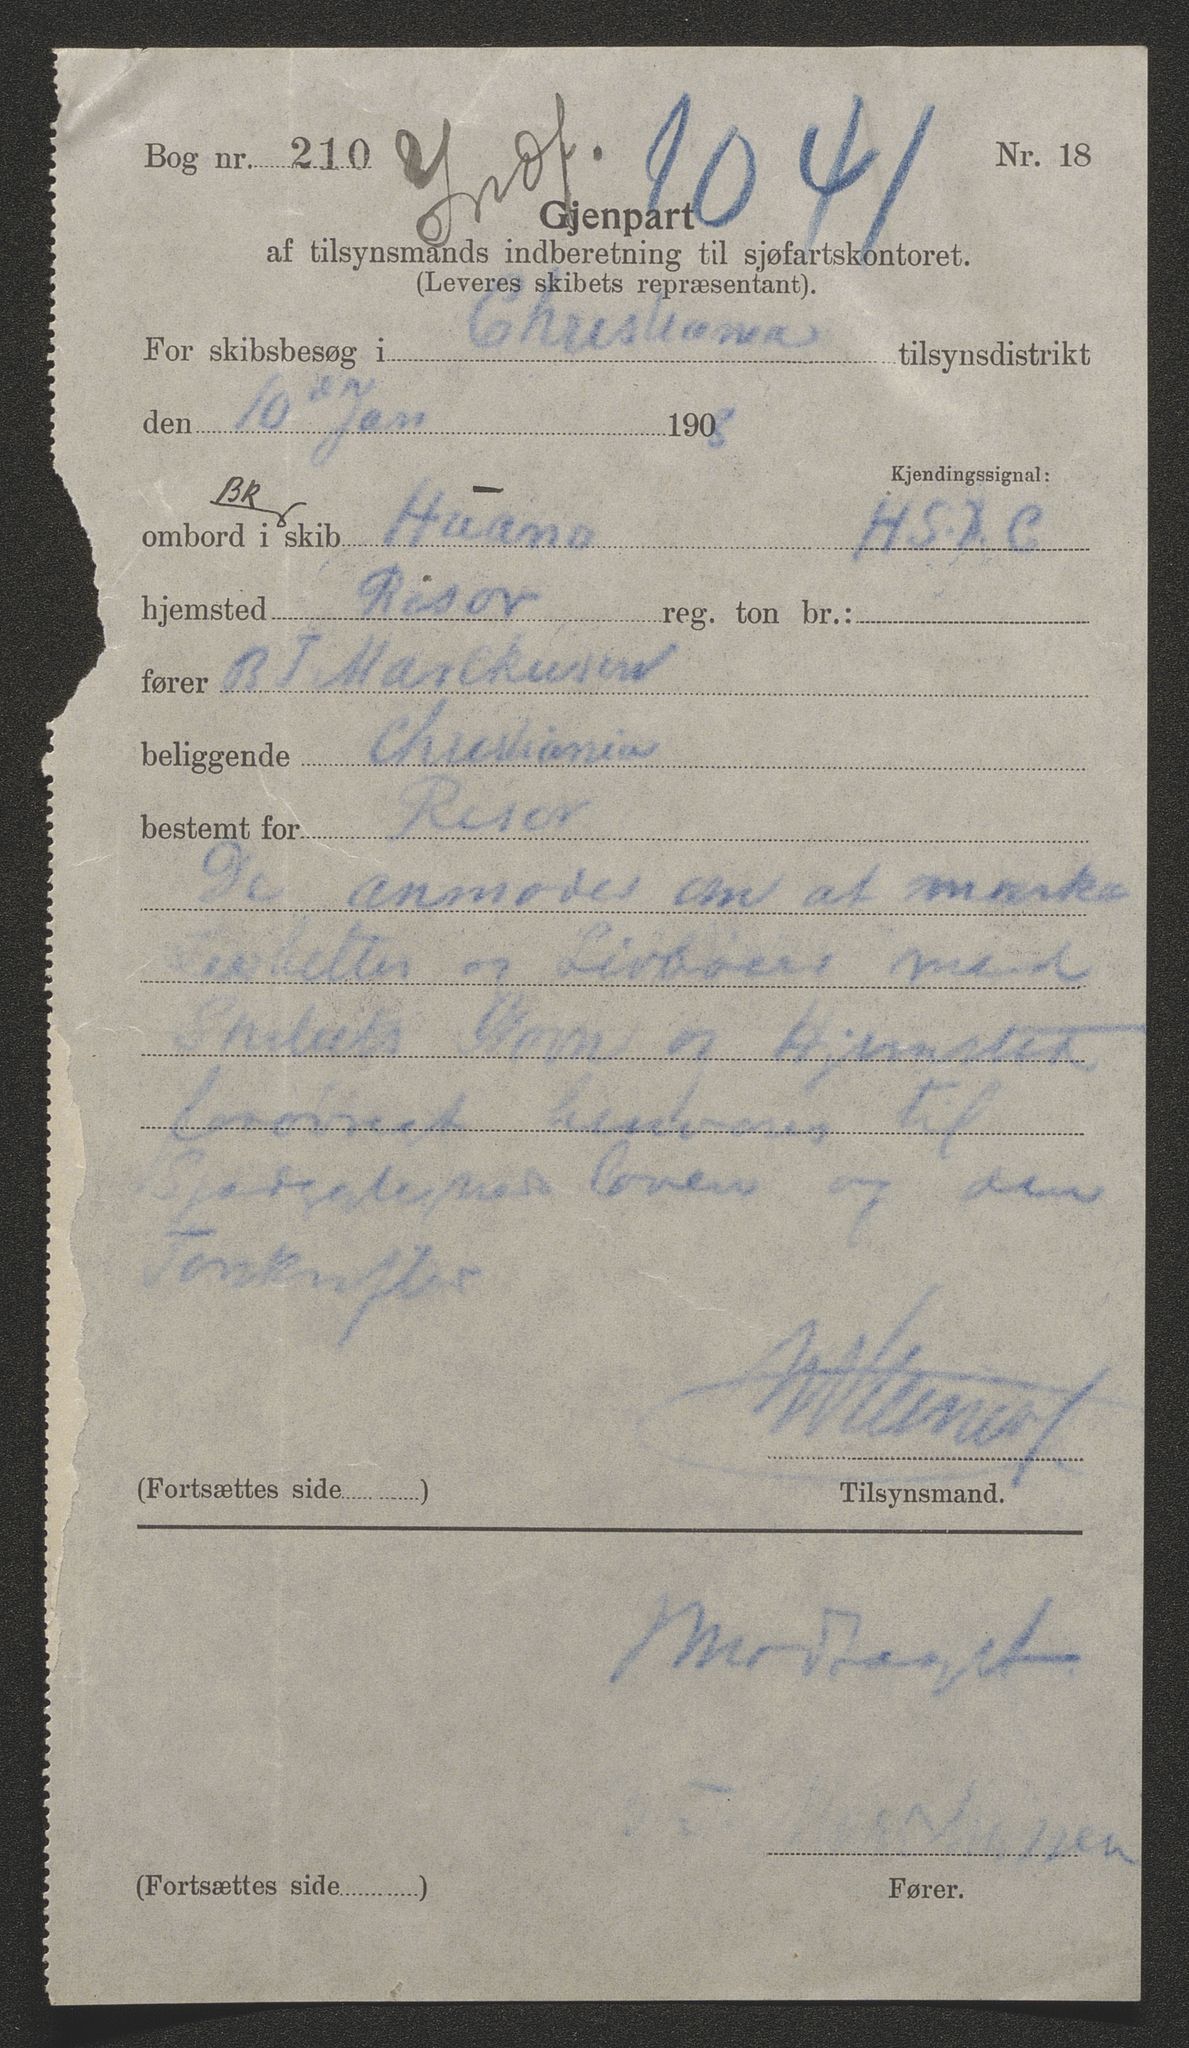 Bog nr. 210 Indf. 1041 Nr. 18
Gjenpart
af tilsynsmands indberetning til sjøfartskontoret.
(Leveres skibets repræsentant).
For skibsbesøg i Christiania tilsynsdistrikt
den 10 den Jan 1908
Kjendingssignal:
BR
ombord i skib Huano H.S.D.C
hjemsted Risør reg. ton br.:
fører B T Marckusen
beliggende Christiania
bestemt for Risør
De anmodes om at mærke
og Livbøier med
Skibets Navn og Hjemsted
forøvrigt henvises til
loven og dens
Forskrifter
(Fortsættes side ) Tilsynsmand.
Modtaget
Markussen
(Fortsættes side ) Fører.